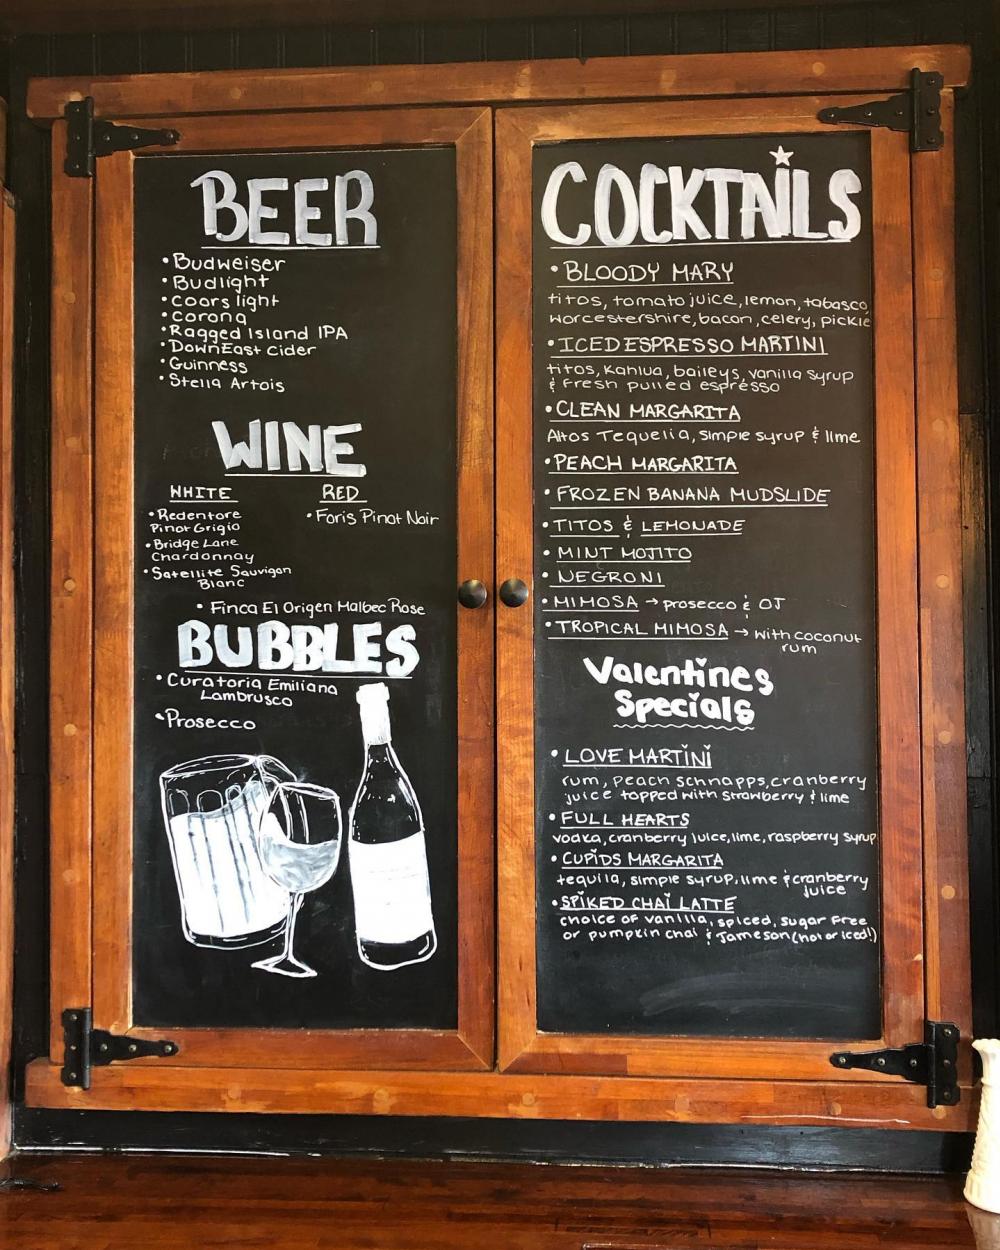 BEER
• Budweiser
• Budlight
• Coors light
• Corona
• Ragged Island IPA
• DownEast Cider
• Guinness
• Stella Artois
WINE
WHITE
• Redentore
Pinot Grigio
• Bridge Lane
Chardonnay
• Satellite Sauvigan
Blanc
RED
• Foris Pinot Nair
• Finca El Origen Malbec Rose
BUBBLES
• Curatoria Emiliana
Lambrusco
• Prosecco
COCKTAILS
• BLOODY MARY
titos, tomato juice, lemon, tabasco,
Worcestershire, bacon, celery, pickle
• ICED ESPRESSO MARTINI
titos, Kahlua, baileys, vanilla syrup
& fresh pulled espresso
• CLEAN MARGARITA
Altos Tequelia, simple syrup & lime
• PEACH MARGARITA
• FROZEN BANANA MUDSLIDE
• TITOS & LEMONADE
• MINT MOJITO
• NEGRONI
• MIMOSA → prosecco & OJ
• TROPICAL MIMOSA → with coconut
rum
Valentines
Specials
• LOVE MARTINI
rum, peach schnapps, cranberry
juice topped with strawberry & lime
• FULL HEARTS
vodka, cranberry juice, lime, raspberry syrup
• CUPIDS MARGARITA
tequila, simple syrup, lime & cranberry
juice
• SPIKED CHAI LATTE
choice of vanilla, spiced, sugar free
or pumpkin chai & Jameson (hot or iced!)